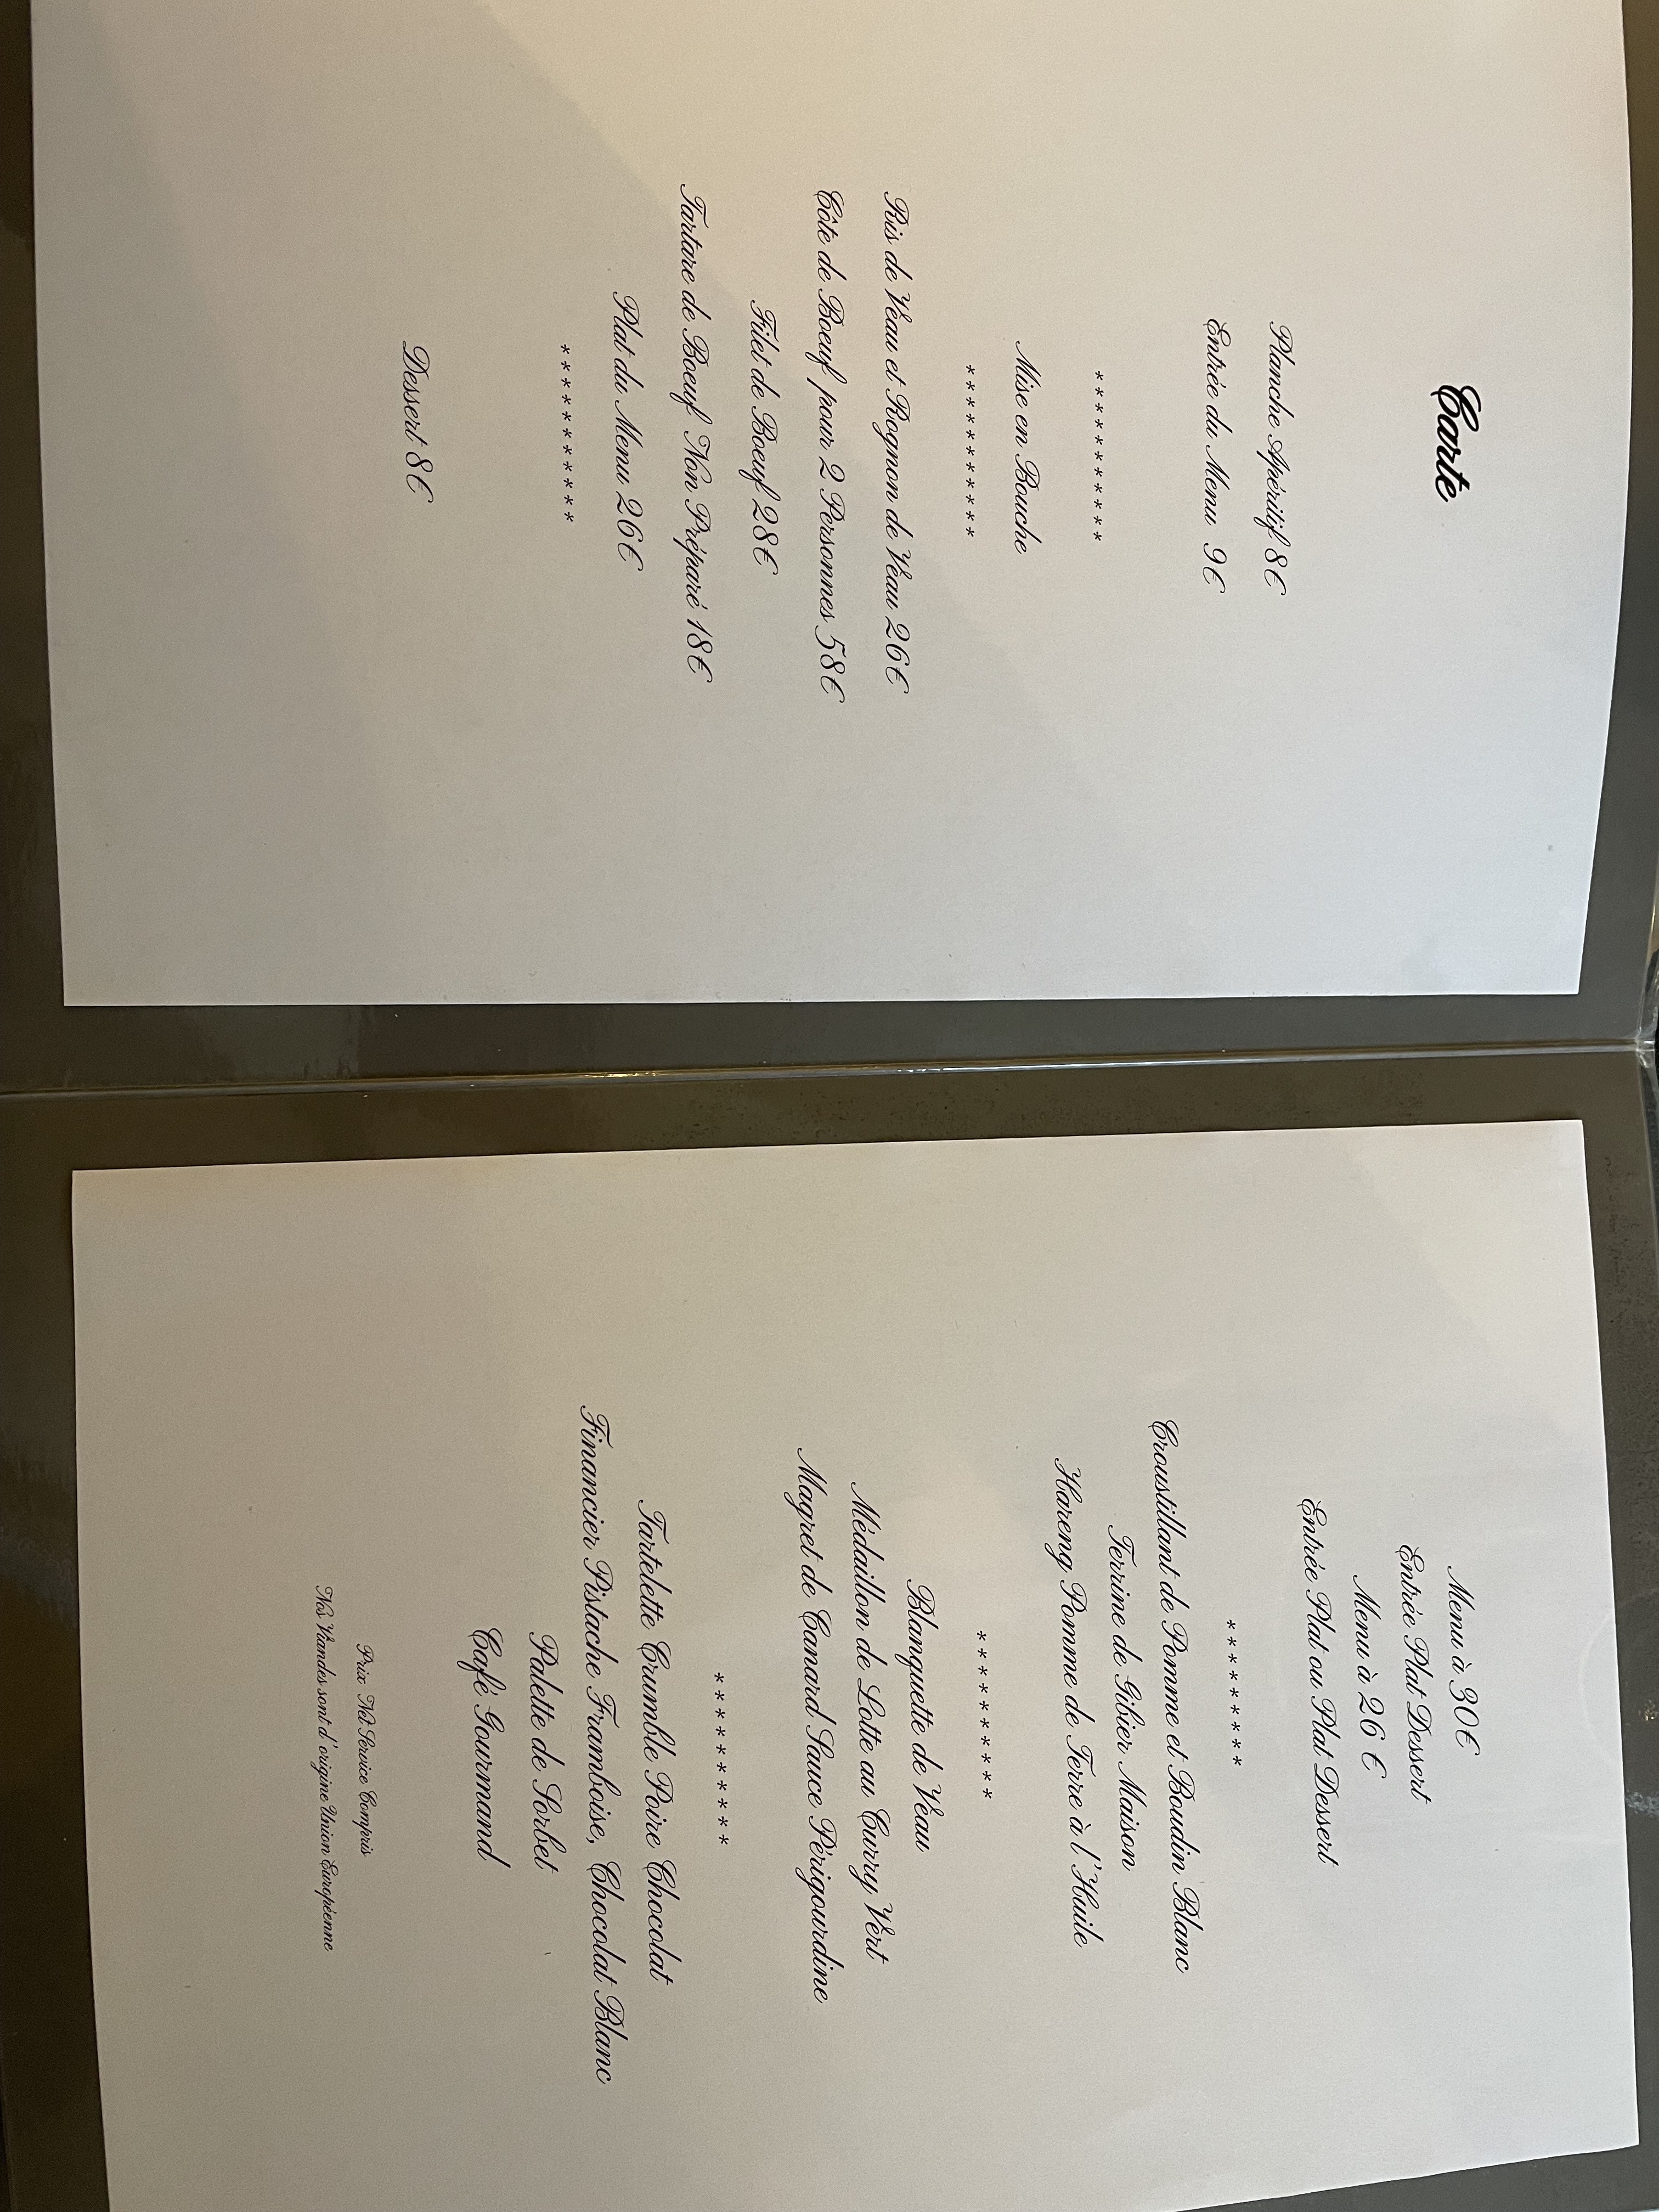 Carte
Planche Apéritif 8€
Entrée du Menu 9€
**********
Mise en Bouche
**********
Ris de Veau et Rognon de Veau 26€
Côte de Boeuf pour 2 Personnes 58€
Filet de Boeuf 28€
Tartare de Boeuf Non Préparé 18€
Plat du Menu 26€
**********
Dessert 8€
Menu à 30€
Entrée Plat Dessert
Menu à 26 €
Entrée Plat ou Plat Dessert
*********
Croustillant de Pomme et Boudin Blanc
Terrine de Gibier Maison
Hareng Pomme de Terre à l'Huile
**********
Blanquette de Veau
Médaillon de Lotte au Curry Vert
Magret de Canard Sauce Périgourdine
**********
Tartelette Crumble Poire Chocolat
Financier Pistache Framboise, Chocolat Blanc
Palette de Sorbet
Café Gourmand
Prix Net Service Compris
Nos Viandes sont d'origine Union Européenne